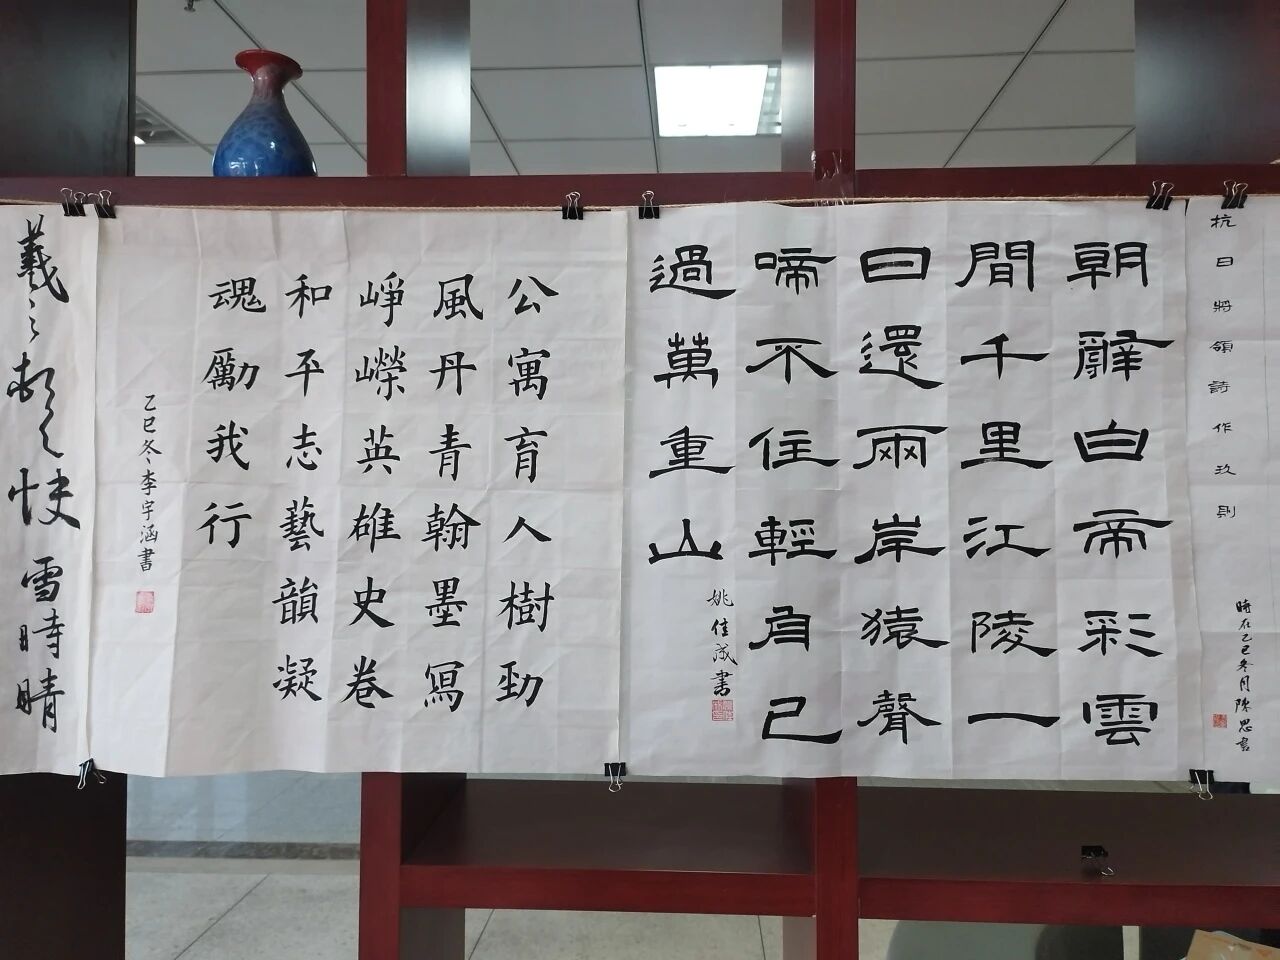 抗日將領詩作玖則
時在乙巳冬月陳思書
朝辭白帝彩雲
間千里江陵一
日還兩岸猿聲
啼不住輕舟已
過萬重山
姚佳成書
公寓育人樹勁
風丹青翰墨寫
崢嶸英雄史卷
和平志藝韻凝
魂勵我行
乙巳冬李宇涵書
羲之頓首快雪時晴